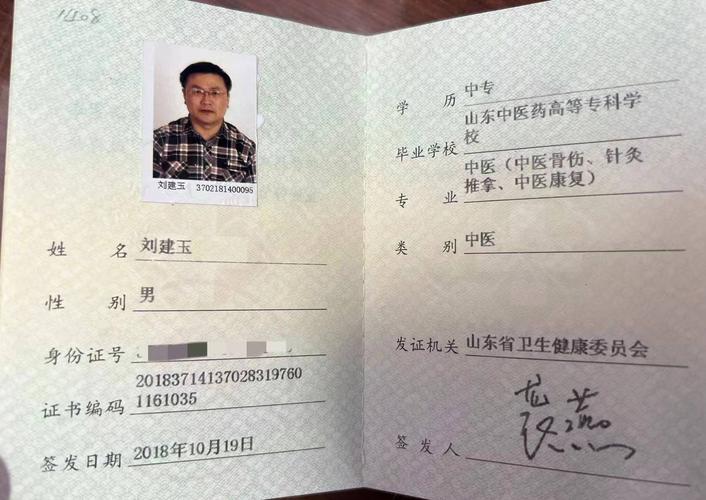 刘建玉 3702181400095
姓 名 刘建玉
性 别 男
身份证号
20183714137028319760
证书编码 1161035
签发日期 2018年10月19日
学 历 中专
山东中医药高等专科学
毕业学校 校
中医（中医骨伤、针灸
专 业 推拿、中医康复）
类 别 中医
发证机关 山东省卫生健康委员会
签发人